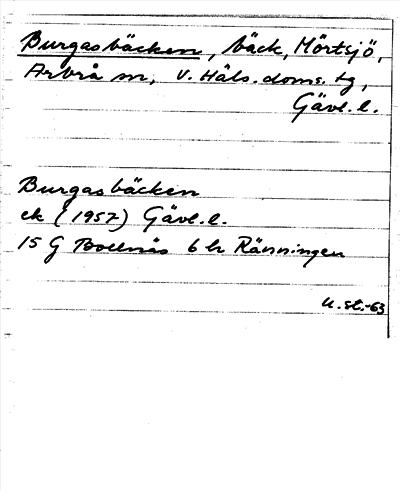 Burgasbäcken, bäck, Mörtsjö,
Arbrå sn, V. Häls. doms. tg,
Gävl. l.
Burgasbäcken
ek (1957) Gävl. l.
15 G Bollnäs 6 h Ränningen
U. st. -63